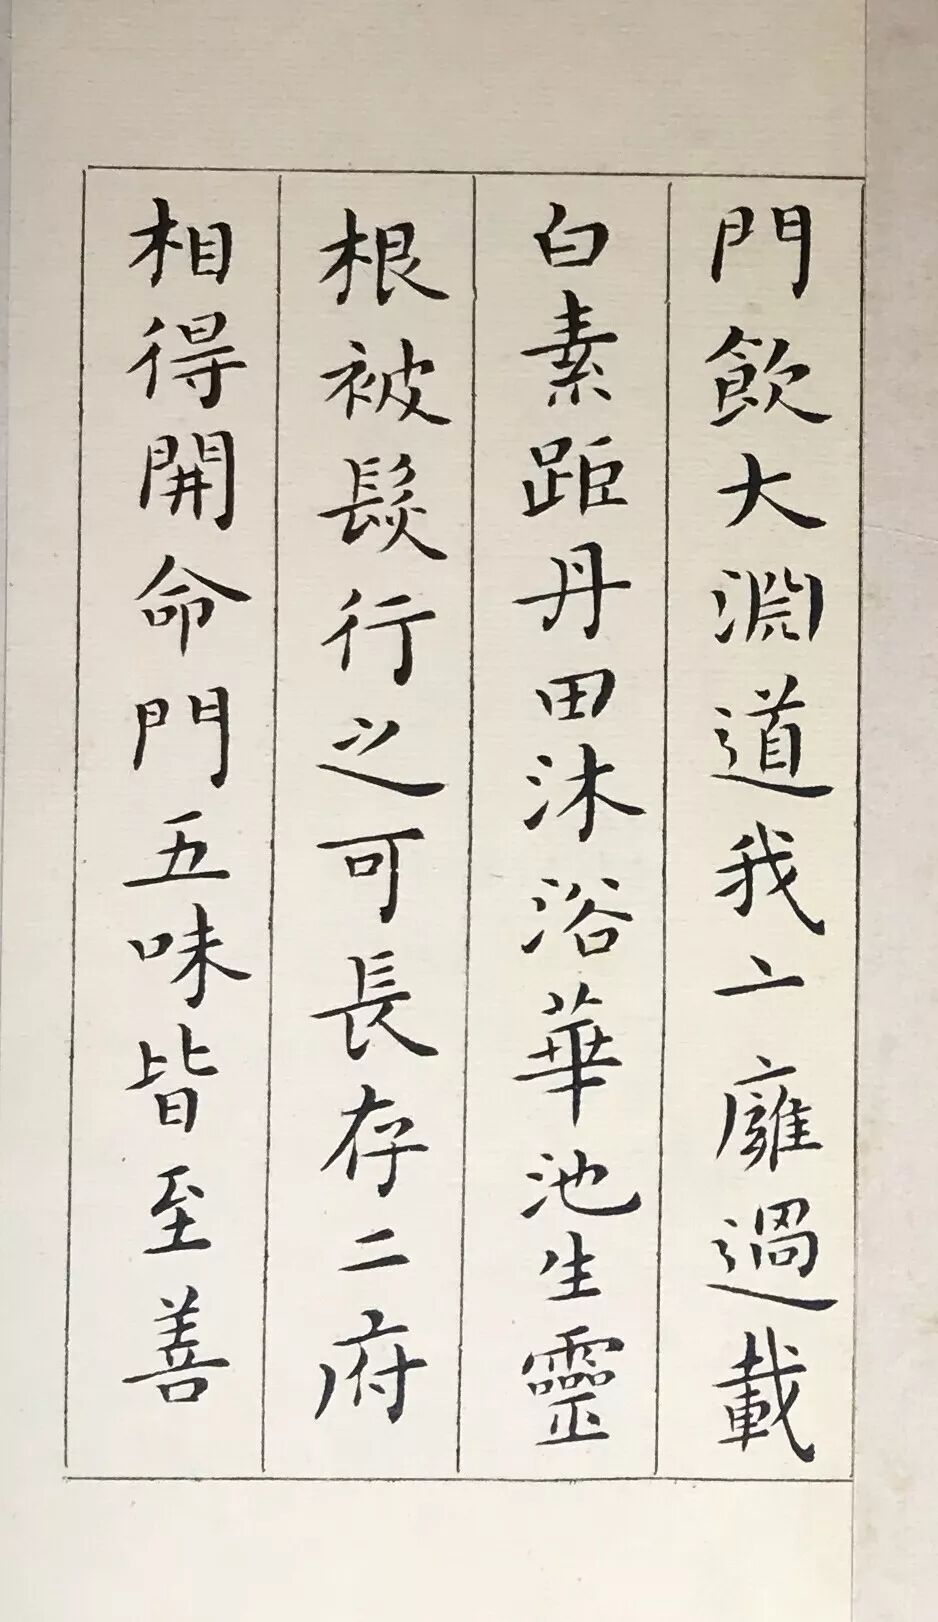 門飲大淵道我亠廱過載
白素距丹田沐浴華池生靈
根被髮行之可長存二府
相得開命門五味皆至善